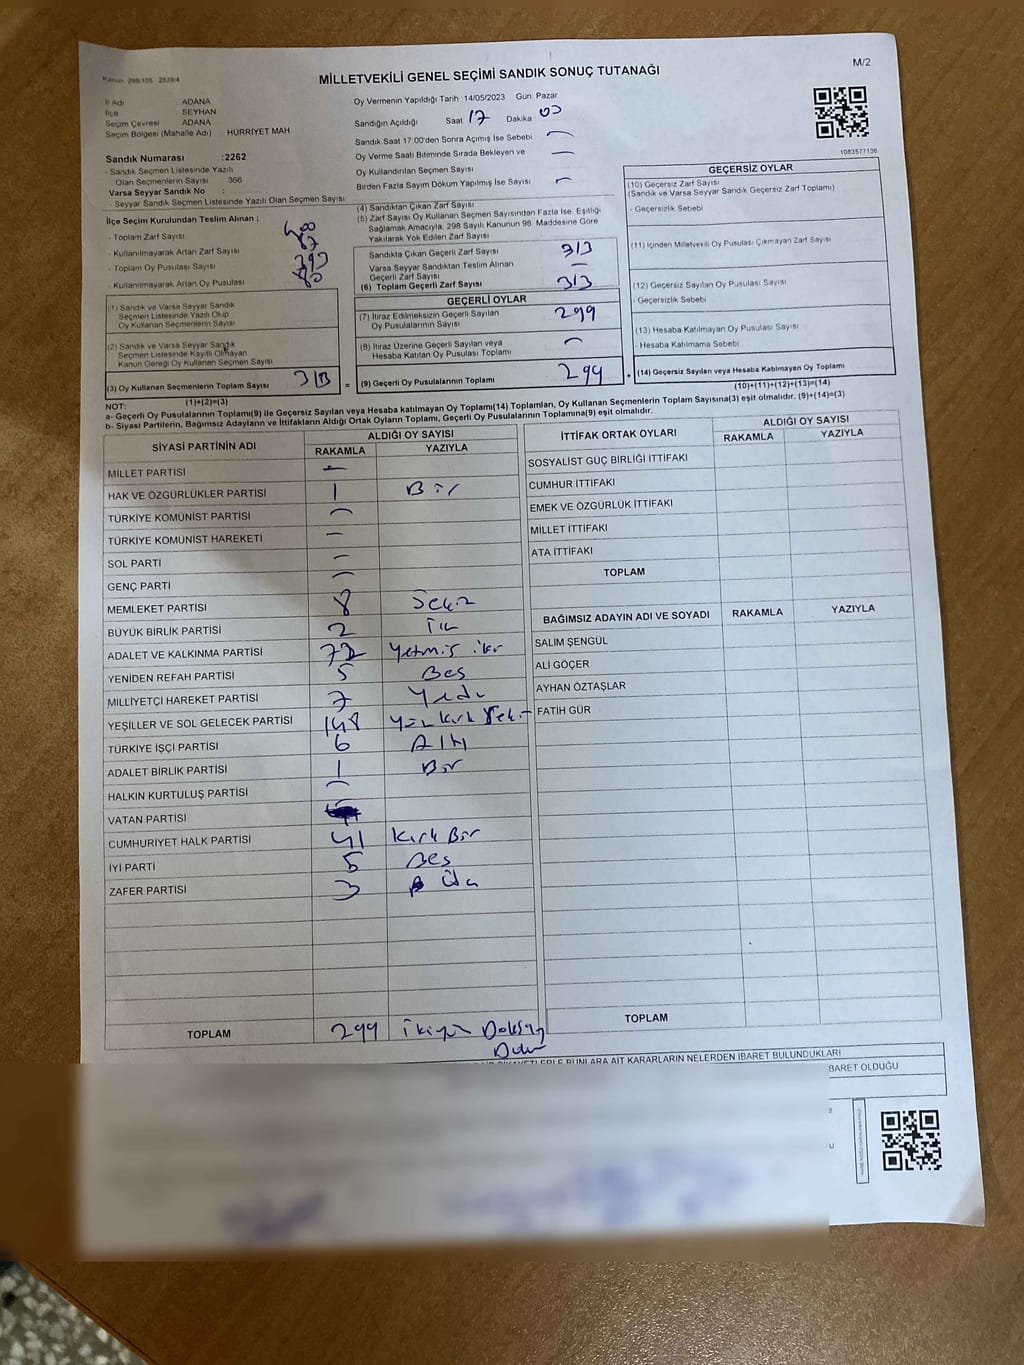 Kanun 298/105 2839/4
MİLLETVEKİLİ GENEL SEÇİMİ SANDIK SONUÇ TUTANAĞI
M/2
İl Adı ADANA
İlçe SEYHAN
Seçim Çevresi ADANA
Seçim Bölgesi (Mahalle Adı) HÜRRİYET MAH
Sandık Numarası :2262
- Sandık Seçmen Listesinde Yazılı
Olan Seçmenlerin Sayısı 366
Varsa Seyyar Sandık No :
- Seyyar Sandık Seçmen Listesinde Yazılı Olan Seçmen Sayısı
Oy Vermenin Yapıldığı Tarih 14/05/2023 Gün: Pazar
Sandığın Açıldığı Saat 17 Dakika 00
Sandık Saat 17:00'den Sonra Açımış İse Sebebi
Oy Verme Saati Bitiminde Sırada Bekleyen ve
Oy Kullandırılan Seçmen Sayısı
Birden Fazla Sayım Döküm Yapılmış İse Sayısı
1083577136
İlçe Seçim Kurulundan Teslim Alınan ;
- Toplam Zarf Sayısı 400
- Kullanılmayarak Artan Zarf Sayısı 87
- Toplam Oy Pusulası Sayısı 393
- Kullanılmayarak Artan Oy Pusulası 80
(1) Sandık ve Varsa Seyyar Sandık
Seçmen Listesinde Yazılı Olup
Oy Kullanan Seçmenlerin Sayısı
(2) Sandık ve Varsa Seyyar Sandık
Seçmen Listesinde Kayıtlı Olmayan
Kanun Gereği Oy Kullanan Seçmen Sayısı
(3) Oy Kullanan Seçmenlerin Toplam Sayısı 313 =
(1)+(2)=(3)
(4) Sandıktan Çıkan Zarf Sayısı
(5) Zarf Sayısı Oy Kullanan Seçmen Sayısından Fazla İse, Eşitliği
Sağlamak Amacıyla, 298 Sayılı Kanunun 98. Maddesine Göre
Yakılarak Yok Edilen Zarf Sayısı
Sandıkta Çıkan Geçerli Zarf Sayısı 313
Varsa Seyyar Sandıktan Teslim Alınan
Geçerli Zarf Sayısı
(6) Toplam Geçerli Zarf Sayısı 313
GEÇERLİ OYLAR
(7) İtiraz Edilmeksizin Geçerli Sayılan
Oy Pusulalarının Sayısı 299
(8) İtiraz Üzerine Geçerli Sayılan veya
Hesaba Katılan Oy Pusulası Toplamı
(9) Geçerli Oy Pusulalarının Toplamı 299
GEÇERSİZ OYLAR
(10) Geçersiz Zarf Sayısı
(Sandık ve Varsa Seyyar Sandık Geçersiz Zarf Toplamı)
- Geçersizlik Sebebi
(11) İçinden Milletvekili Oy Pusulası Çıkmayan Zarf Sayısı
(12) Geçersiz Sayılan Oy Pusulası Sayısı
- Geçersizlik Sebebi
(13) Hesaba Katılmayan Oy Pusulası Sayısı
- Hesaba Katılmama Sebebi
(14) Geçersiz Sayılan veya Hesaba Katılmayan Oy Toplamı
(10)+(11)+(12)+(13)=(14)
NOT:
a- Geçerli Oy Pusulalarının Toplamı(9) ile Geçersiz Sayılan veya Hesaba katılmayan Oy Toplamı(14) Toplamları, Oy Kullanan Seçmenlerin Toplam Sayısına(3) eşit olmalıdır. (9)+(14)=(3)
b- Siyasi Partilerin, Bağımsız Adayların ve İttifakların Aldığı Ortak Oyların Toplamı, Geçerli Oy Pusulalarının Toplamına(9) eşit olmalıdır.
SİYASİ PARTİNİN ADI ALDIĞI OY SAYISI
RAKAMLA YAZIYLA
MİLLET PARTİSİ –
HAK VE ÖZGÜRLÜKLER PARTİSİ 1 Bir
TÜRKİYE KOMÜNİST PARTİSİ –
TÜRKİYE KOMÜNİST HAREKETİ –
SOL PARTİ –
GENÇ PARTİ –
MEMLEKET PARTİSİ 8 Sekiz
BÜYÜK BİRLİK PARTİSİ 2 İki
ADALET VE KALKINMA PARTİSİ 72 Yetmiş iki
YENİDEN REFAH PARTİSİ 5 Beş
MİLLİYETÇİ HAREKET PARTİSİ 7 Yedi
YEŞİLLER VE SOL GELECEK PARTİSİ 148 Yüz kırk Sekiz
TÜRKİYE İŞÇİ PARTİSİ 6 Altı
ADALET BİRLİK PARTİSİ 1 Bir
HALKIN KURTULUŞ PARTİSİ –
VATAN PARTİSİ
CUMHURİYET HALK PARTİSİ 41 Kırk Bir
İYİ PARTİ 5 Beş
ZAFER PARTİSİ 3 Üç
TOPLAM 299 İkiyüz Doksan
Dokuz
İTTİFAK ORTAK OYLARI ALDIĞI OY SAYISI
RAKAMLA YAZIYLA
SOSYALİST GÜÇ BİRLİĞİ İTTİFAKI
CUMHUR İTTİFAKI
EMEK VE ÖZGÜRLÜK İTTİFAKI
MİLLET İTTİFAKI
ATA İTTİFAKI
TOPLAM
BAĞIMSIZ ADAYIN ADI VE SOYADI RAKAMLA YAZIYLA
SALİM ŞENGÜL
ALİ GÖÇER
AYHAN ÖZTAŞLAR
FATİH GÜR
TOPLAM
BUNLARA AİT KARARLARIN NELERDEN İBARET BULUNDUKLARI
BARET OLDUĞU